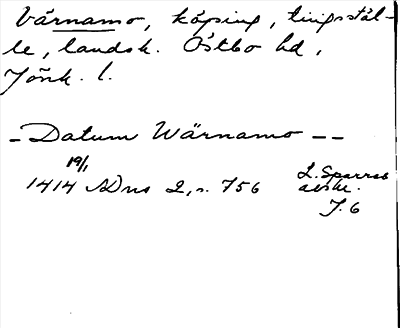 Värnamo, köping, tingsstäl-
le, landsk. Östbo hd,
Jönk. l.
- Datum Wärnamo - -
19/1
1414 SDns 2, s. 756 L. Sparres
avskr.
J. 6